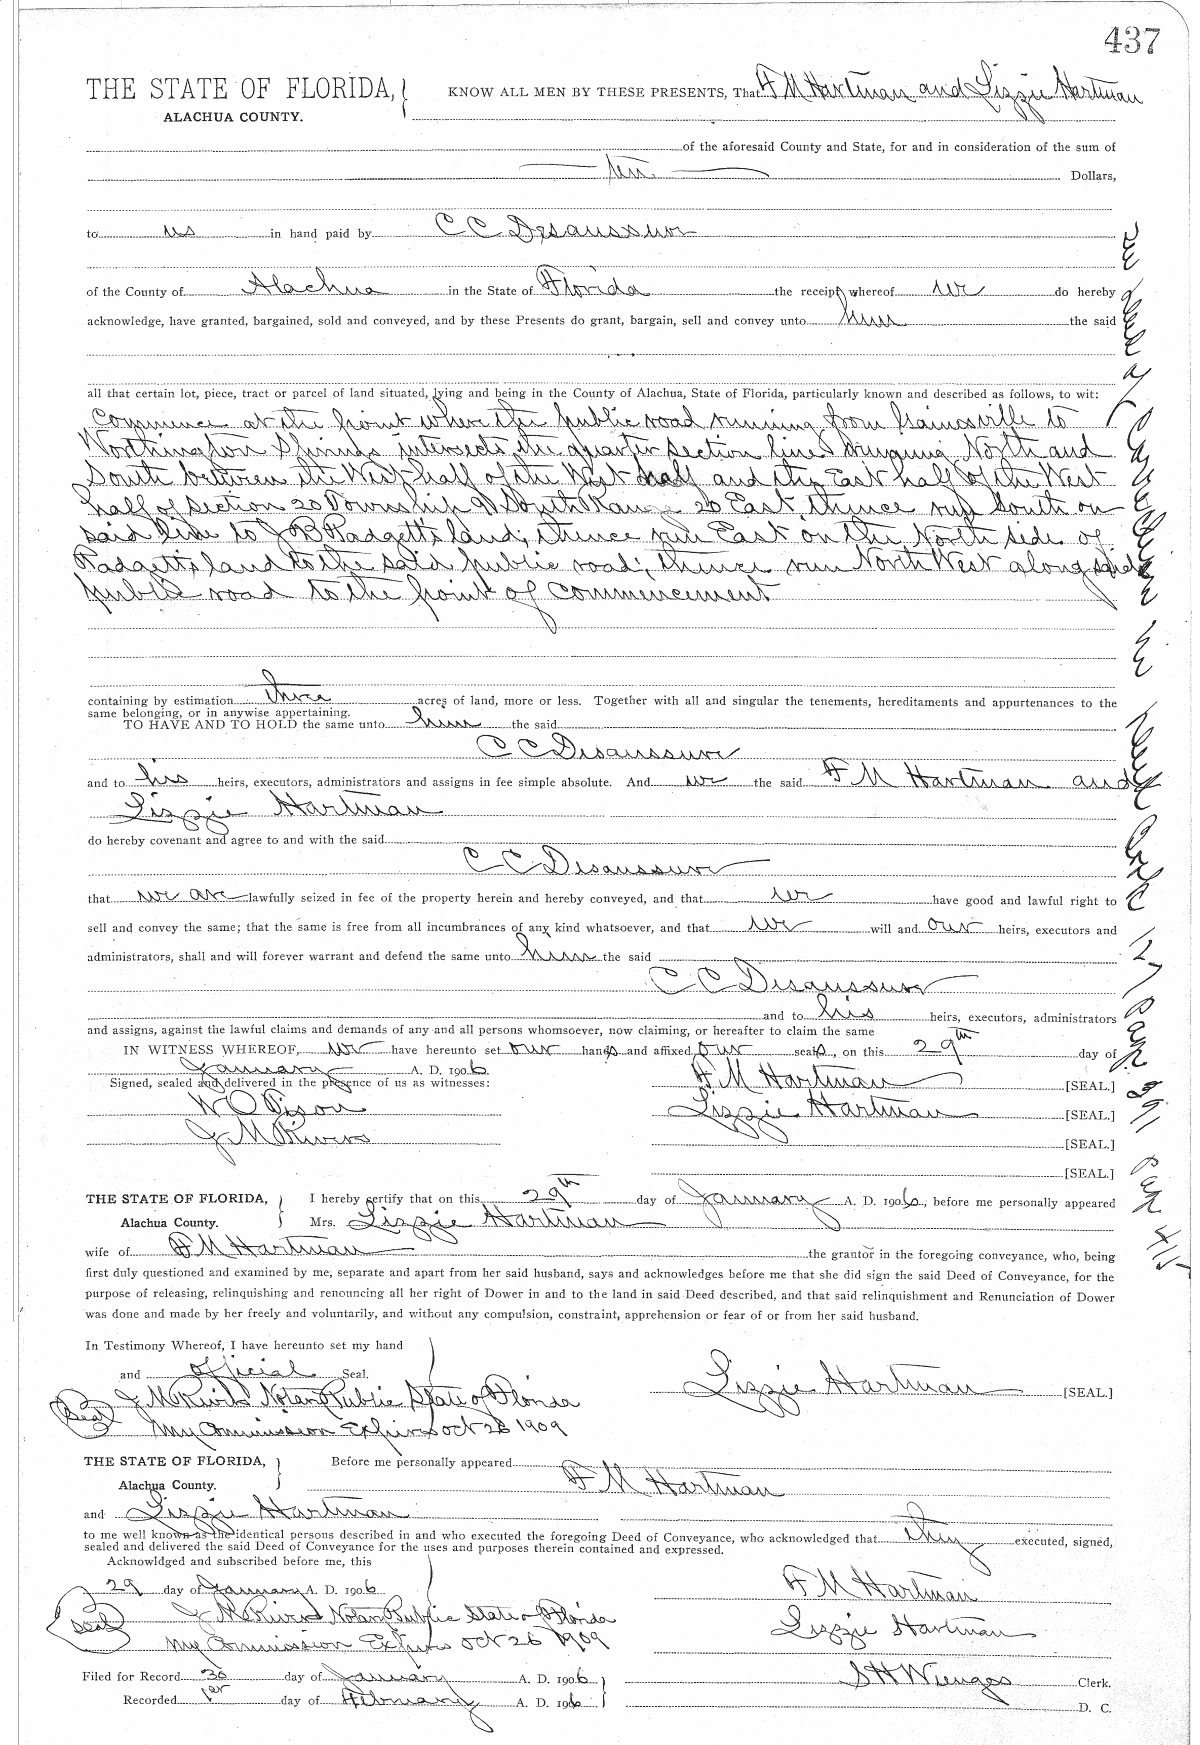 437
THE STATE OF FLORIDA, KNOW ALL MEN BY THESE PRESENTS, That F M Hartman and Lizzie Hartman
ALACHUA COUNTY.
of the aforesaid County and State, for and in consideration of the sum of
ten Dollars,
to us in hand paid by C C Desaussure
of the County of Alachua in the State of Florida the receipt whereof we do hereby
acknowledge, have granted, bargained, sold and conveyed, and by these Presents do grant, bargain, sell and convey unto him the said
all that certain lot, piece, tract or parcel of land situated, lying and being in the County of Alachua, State of Florida, particularly known and described as follows, to wit:
Commence at the point where the public road running from Gainesville to
Worthington Springs intersects the quarter section line running North and
South between the West half of the West half and the East half of the West
half of Section 20 Township 9 South Range 20 East, thence run South on
said line to J B Padgett's land; thence run East on the North side of
Padgett's land to the said public road; thence run North West along said
public road to the point of commencement
containing by estimation three acres of land, more or less. Together with all and singular the tenements, hereditaments and appurtenances to the
same belonging, or in anywise appertaining.
TO HAVE AND TO HOLD the same unto him the said
C C Desaussure
and to his heirs, executors, administrators and assigns in fee simple absolute. And we the said F M Hartman and
Lizzie Hartman
do hereby covenant and agree to and with the said
C C Desaussure
that we are lawfully seized in fee of the property herein and hereby conveyed, and that we have good and lawful right to
sell and convey the same; that the same is free from all incumbrances of any kind whatsoever, and that we will and our heirs, executors and
administrators, shall and will forever warrant and defend the same unto him the said
C C Desaussure
and to his heirs, executors, administrators
and assigns, against the lawful claims and demands of any and all persons whomsoever, now claiming, or hereafter to claim the same
IN WITNESS WHEREOF, we have hereunto set our hands and affixed our seals, on this 29th day of
January A. D. 1906
Signed, sealed and delivered in the presence of us as witnesses: F M Hartman [SEAL.]
W O Lizzie Hartman [SEAL.]
J M Rivers [SEAL.]
[SEAL.]
THE STATE OF FLORIDA, I hereby certify that on this 29th day of January A. D. 1906, before me personally appeared
Alachua County. Mrs. Lizzie Hartman
wife of F M Hartman the grantor in the foregoing conveyance, who, being
first duly questioned and examined by me, separate and apart from her said husband, says and acknowledges before me that she did sign the said Deed of Conveyance, for the
purpose of releasing, relinquishing and renouncing all her right of Dower in and to the land in said Deed described, and that said relinquishment and Renunciation of Dower
was done and made by her freely and voluntarily, and without any compulsion, constraint, apprehension or fear of or from her said husband.
In Testimony Whereof, I have hereunto set my hand
and official Seal.
Lizzie Hartman [SEAL.]
Seal J M Rivers Notary Public State of Florida
My Commission Expires Oct 26 1909
THE STATE OF FLORIDA, Before me personally appeared F M Hartman
Alachua County.
and Lizzie Hartman
to me well known as the identical persons described in and who executed the foregoing Deed of Conveyance, who acknowledged that they executed, signed,
sealed and delivered the said Deed of Conveyance for the uses and purposes therein contained and expressed.
Acknowldged and subscribed before me, this
29 day of January A. D. 1906 F M Hartman
Seal J M Rivers Notary Public State of Florida Lizzie Hartman
My Commission Expires Oct 26 1909
Filed for Record 30 day of January A. D. 1906 S H Wienges Clerk.
Recorded 1st day of February A. D. 1906 D. C.